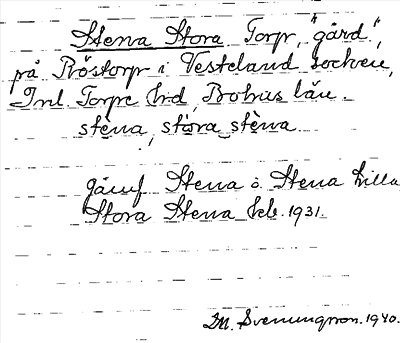 Stena Stora Torp, "gård",
på Röstorp i Vesteland socken,
Inl. Torpe hd, Bohus län.
stèna, stòra stèna
jämf Stena o. Stena Lilla
Stora Stena Jeb. 1931.
M. Svenungsson. 1940.